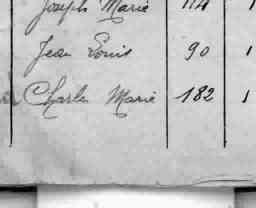 Joseph Marie 114
Jean Louis 90 1
Charles Marie 182 1